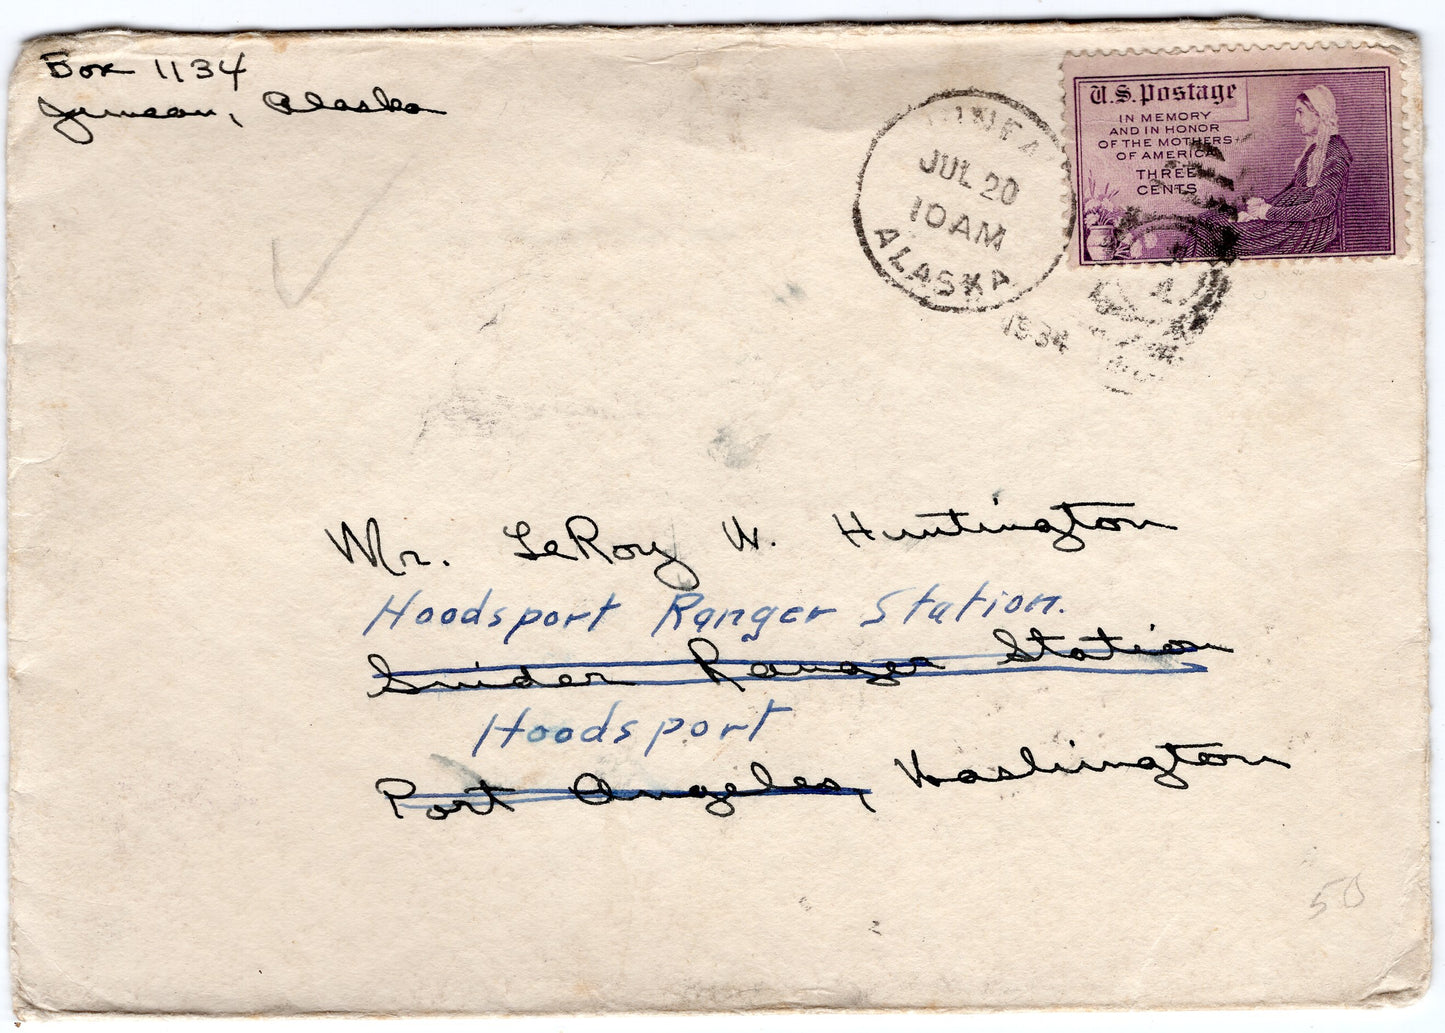 Box 1134
Juneau, Alaska
JUNEA
JUL 20
10 AM
ALASKA
1934
U.S. Postage
IN MEMORY
AND IN HONOR
OF THE MOTHERS
OF AMERICA
THREE
CENTS
Mr. LeRoy W. Huntington
Hoodsport Ranger Station.
Snider Ranger Station
Hoodsport
Port Angeles, Washington
50